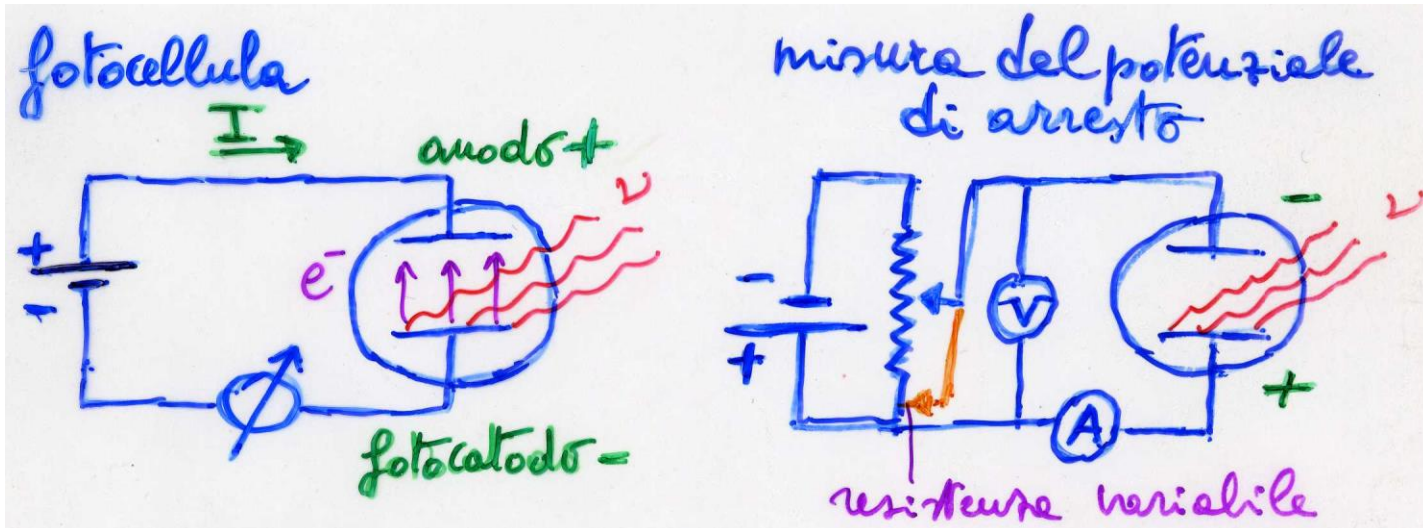 fotocellula
I
anodo +
ν
+
-
e⁻
fotocatodo -
misura del potenziale
di arresto
-
+
V
-
ν
+
A
resistenza variabile